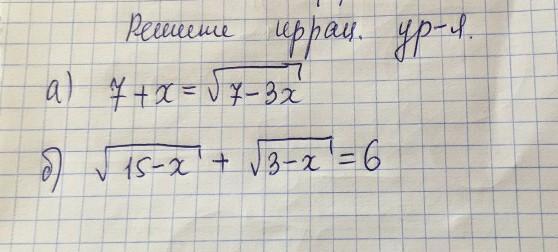 Решение иррац. ур-я.
а) 7 + x = √(7 - 3x)
б) √(15 - x) + √(3 - x) = 6